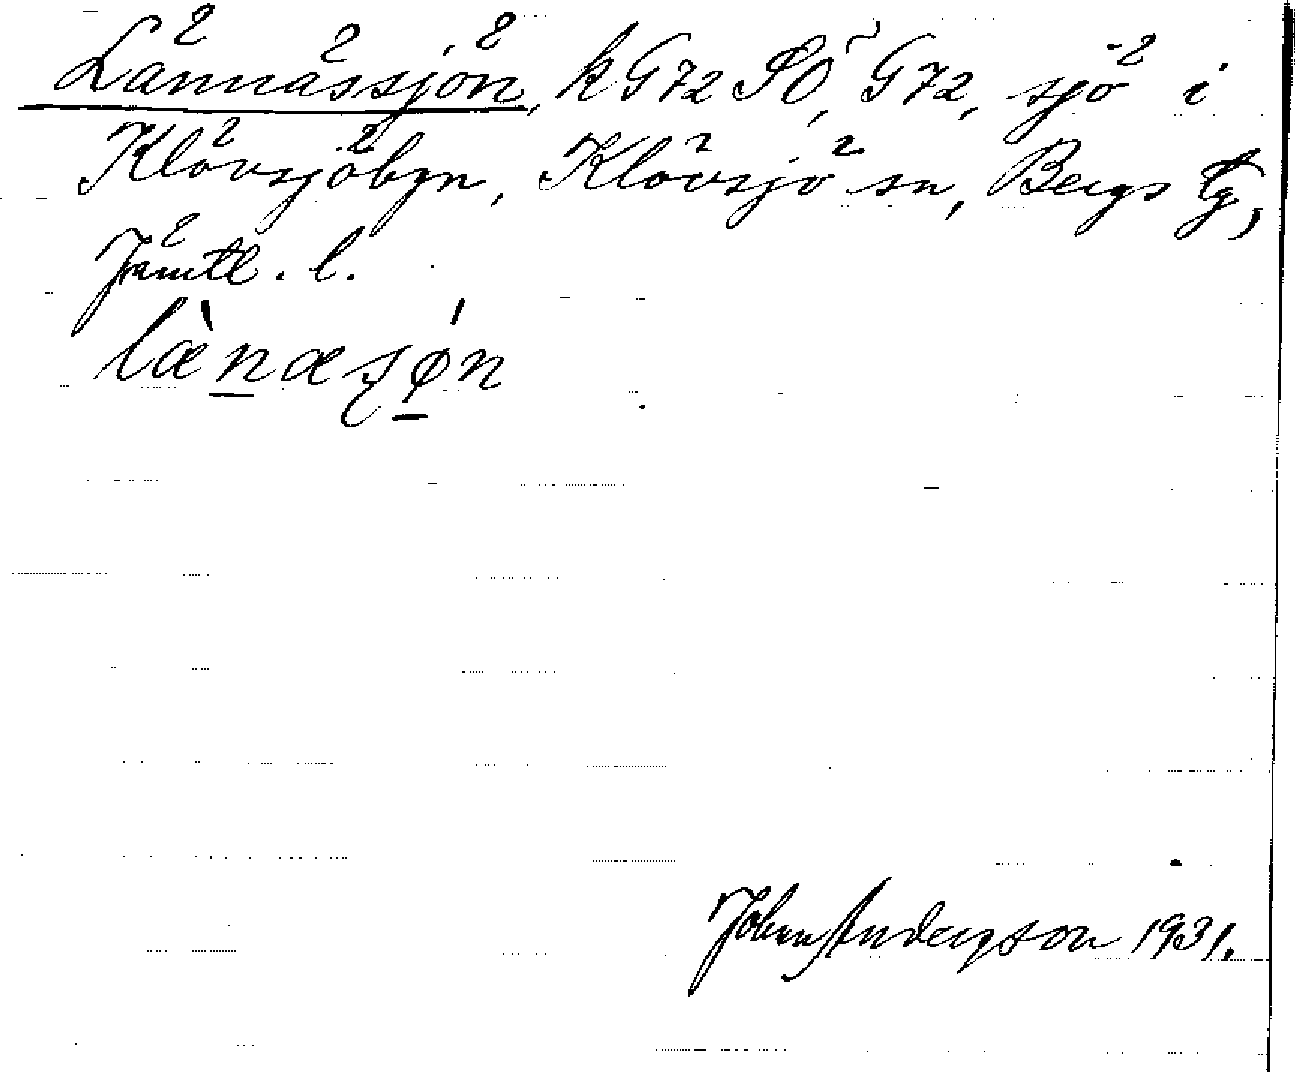 Lännässjön, k G72 SÖ, G72, sjö i
Klövsjöbyn, Klövsjö sn, Bergs tg,
Jämtl. l.
læ̀n̲æʂǿ̲n
Johan Anderson 1931.